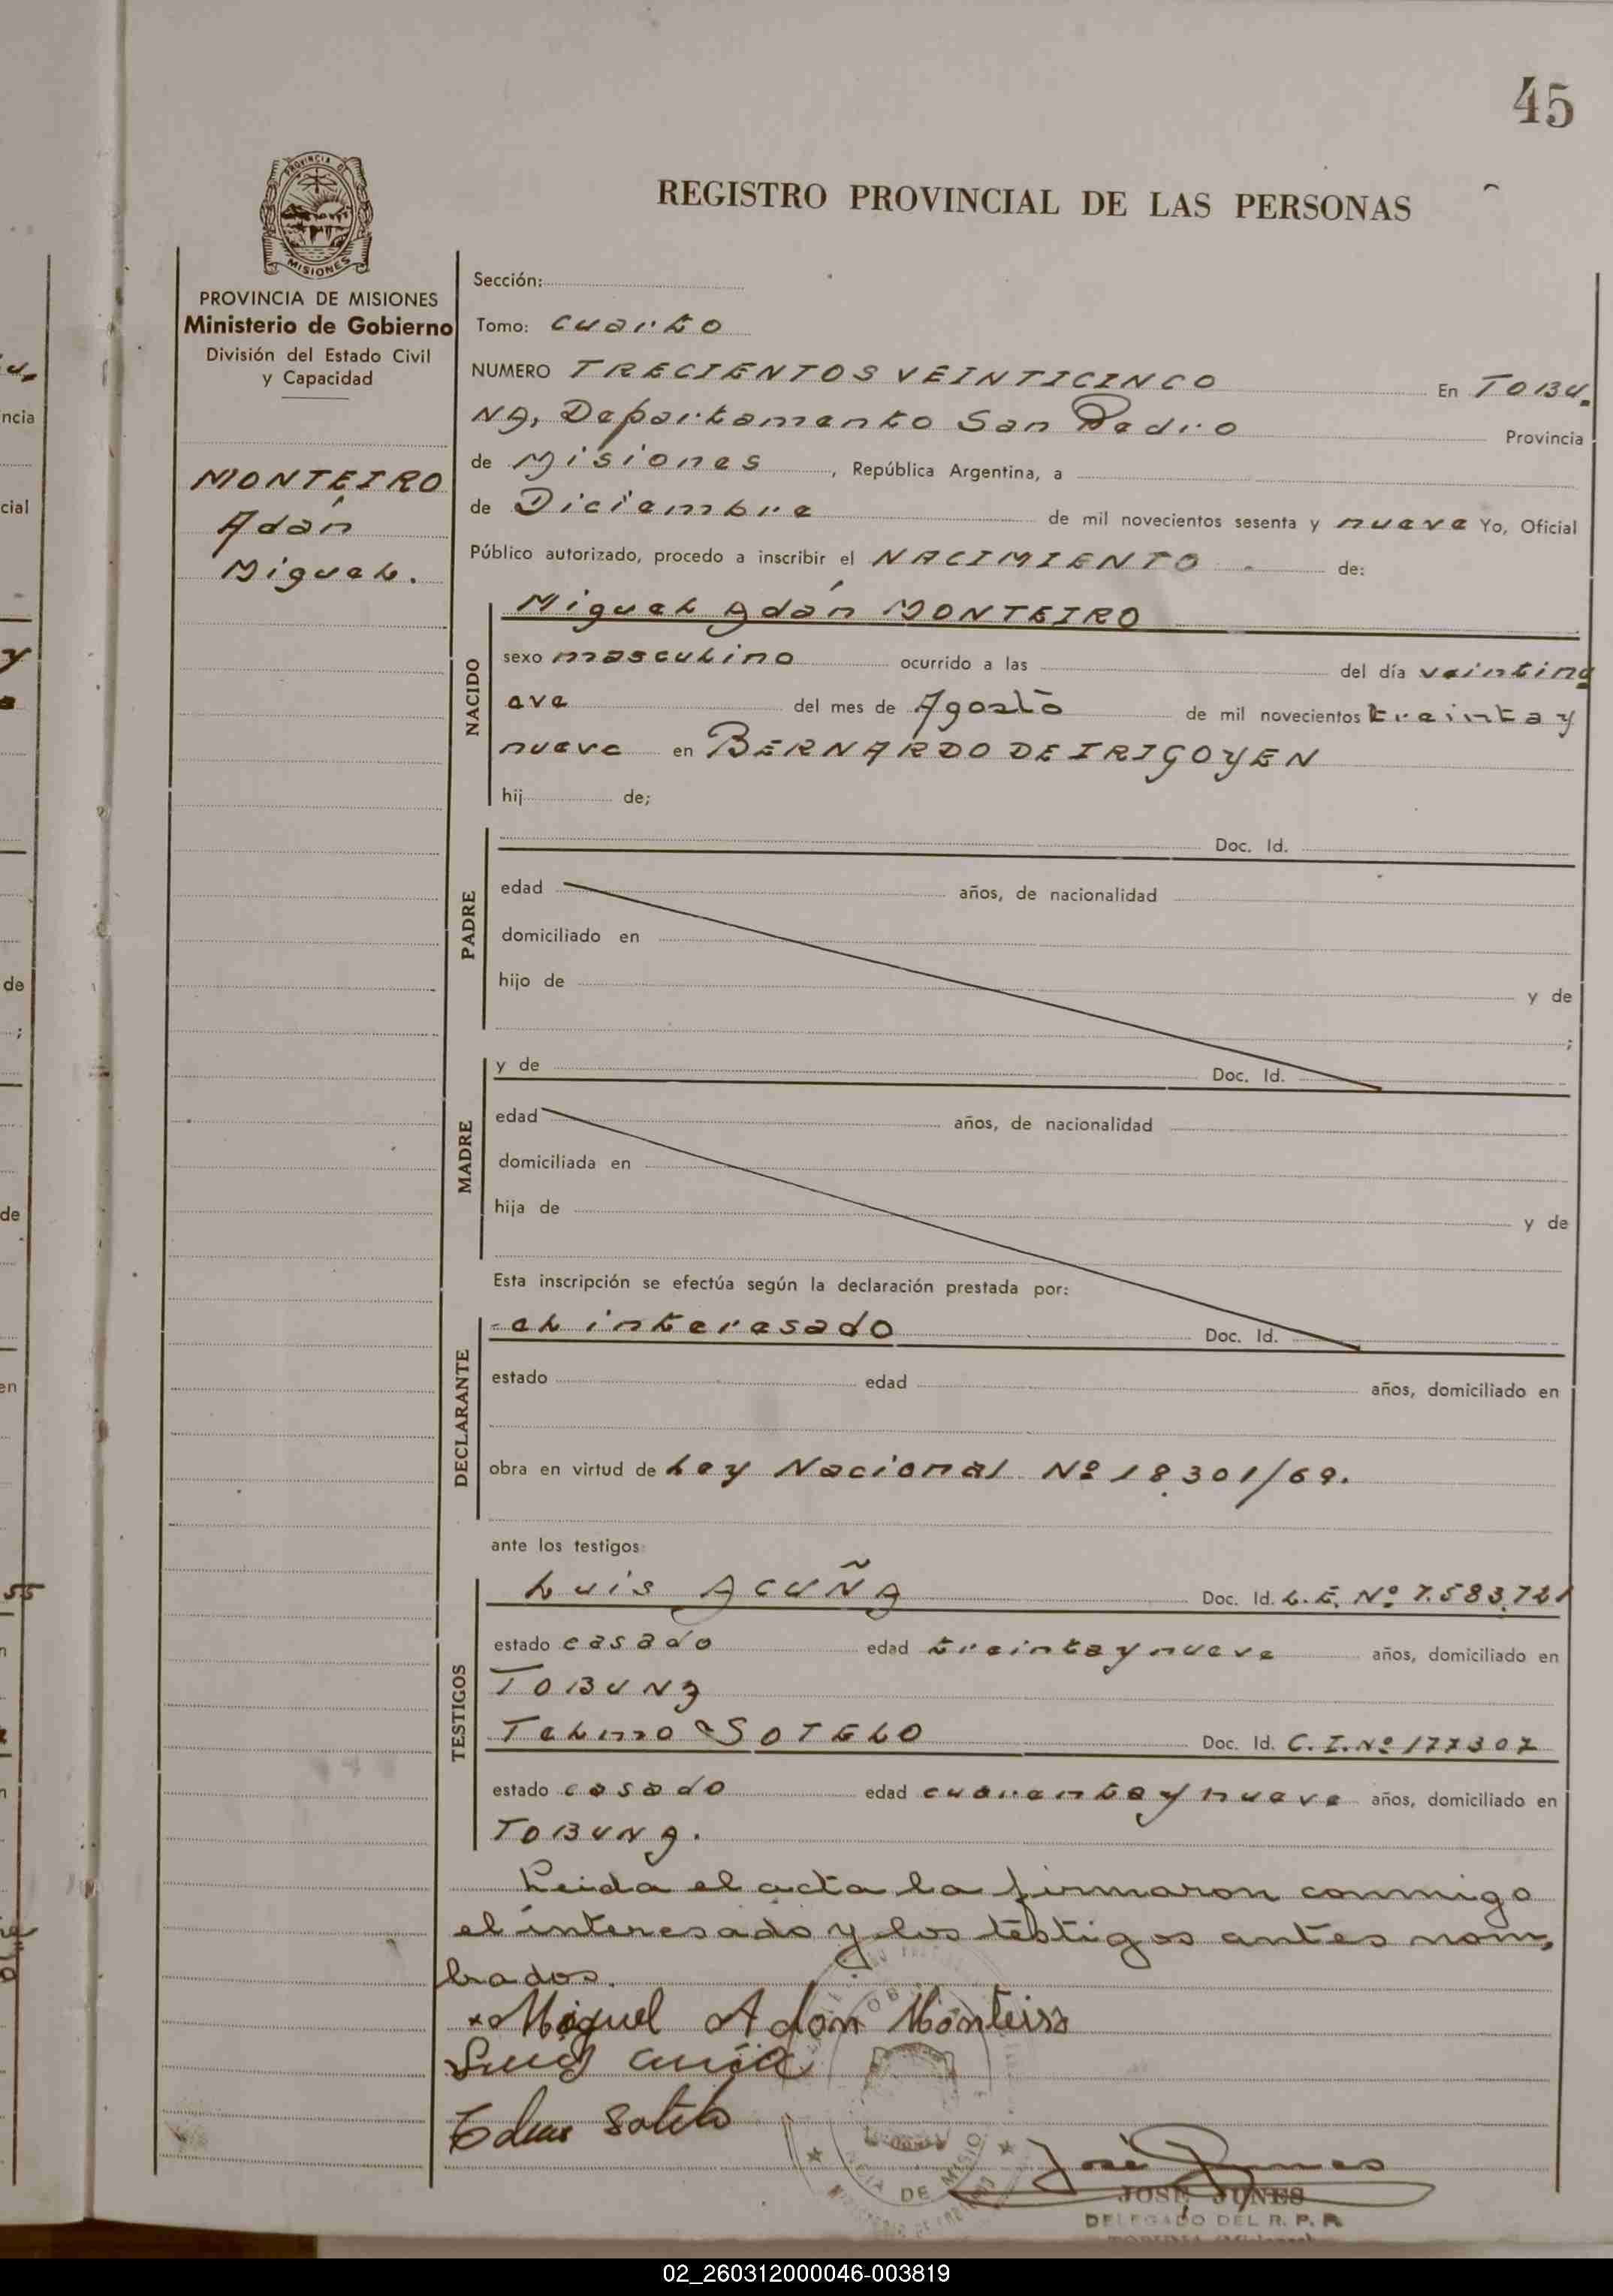 45
PROVINCIA DE
MISIONES
PROVINCIA DE MISIONES
Ministerio de Gobierno
División del Estado Civil
y Capacidad
MONTEIRO
Adán
Miguel.
REGISTRO PROVINCIAL DE LAS PERSONAS
Sección:
Tomo: cuarto
NUMERO TRECIENTOS VEINTICINCO En TOBU-
NA, Departamento San Pedro Provincia
de Misiones, República Argentina, a
de Diciembre de mil novecientos sesenta y nueve Yo, Oficial
Público autorizado, procedo a inscribir el NACIMIENTO de:
NACIDO
Miguel Adán MONTEIRO
sexo masculino ocurrido a las del día veintinu
eve del mes de Agosto de mil novecientos treinta y
nueve en BERNARDO DE IRIGOYEN
hij de;
PADRE
Doc. Id.
edad años, de nacionalidad
domiciliado en
hijo de y de
;
MADRE
y de Doc. Id.
edad años, de nacionalidad
domiciliada en
hija de y de
Esta inscripción se efectúa según la declaración prestada por:
DECLARANTE
-el interesado Doc. Id.
estado edad años, domiciliado en
obra en virtud de Ley Nacional Nº 18.301/69.
ante los testigos
TESTIGOS
Luis ACUÑA Doc. Id. L.E. Nº 7.583.721
estado casado edad treinta y nueve años, domiciliado en
TOBUNA
Telmo SOTELO Doc. Id. C.I. Nº 177307
estado casado edad cuarenta y nueve años, domiciliado en
TOBUNA.
Leida el acta la firmaron conmigo
el interesado y los testigos antes nom-
brados.
Miguel Adan Monteiro
Luis Acuña
Telmo Sotelo
José Junes
JOSE JUNES
DELEGADO DEL R. P. P.
DE MISIO
02_260312000046-003819